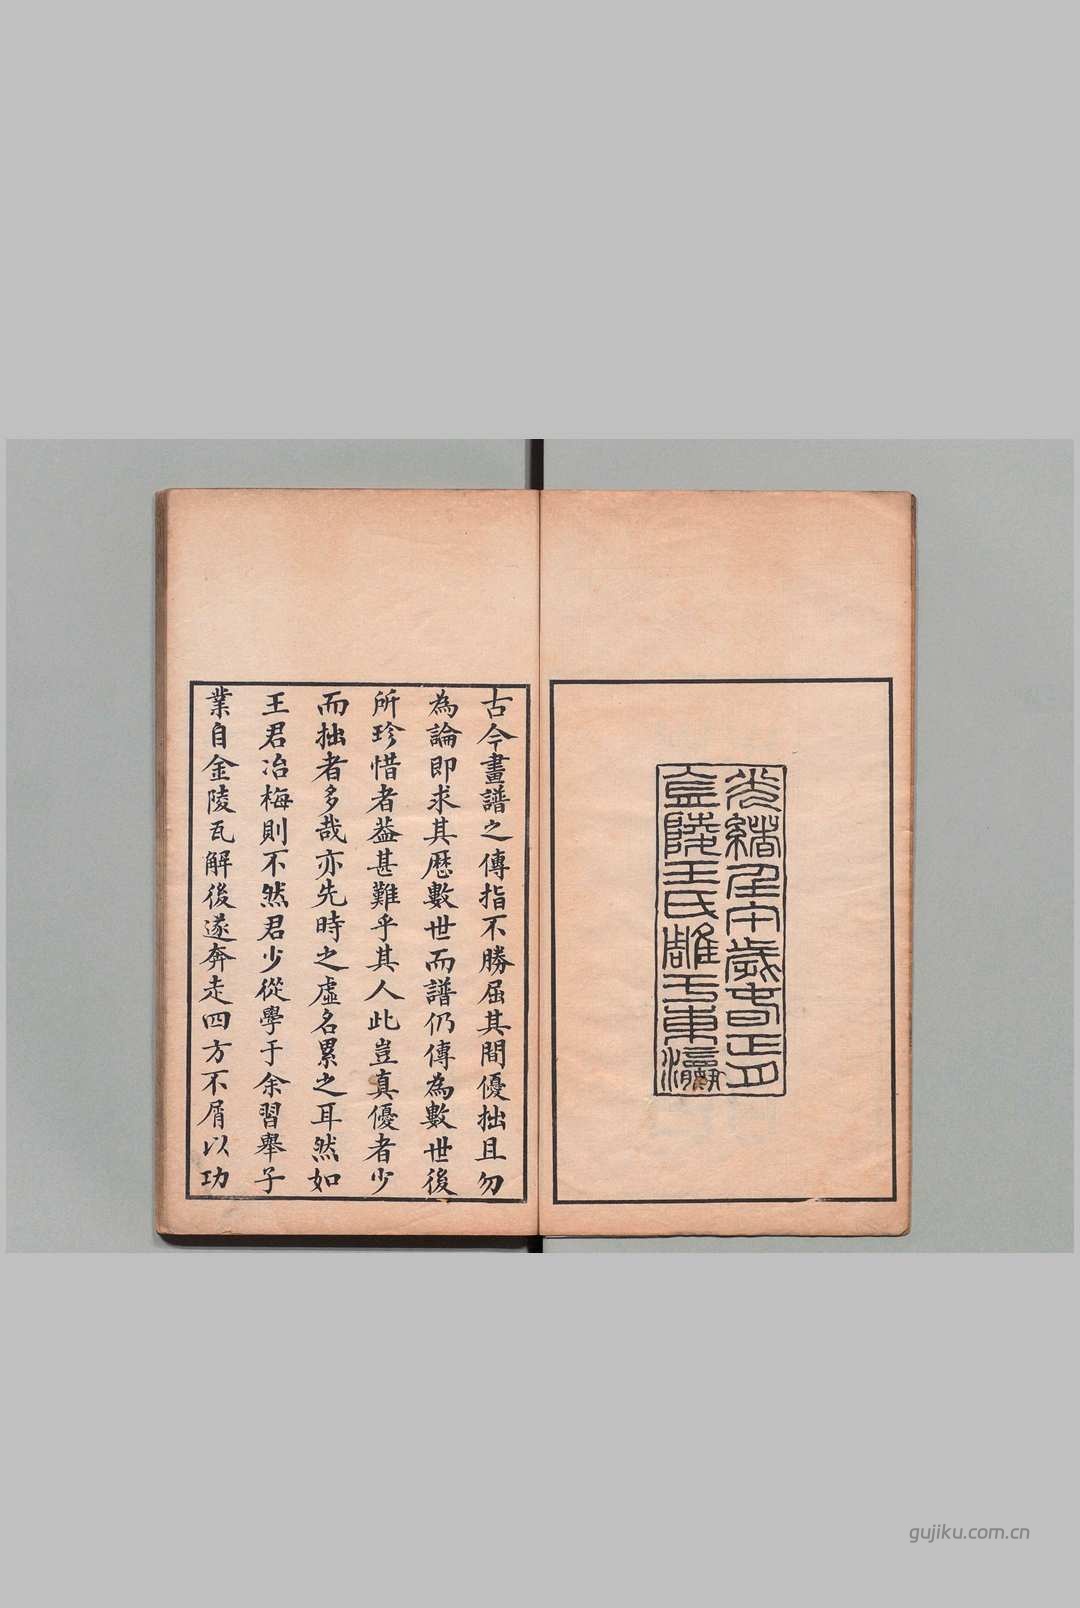 光緒壬午歲春正月
金陵王氏雕于東瀛
古今畫譜之傳指不勝屈其間優拙且勿
為論即求其歷數世而譜仍傳為數世後
所珍惜者葢甚難乎其人此豈真優者少
而拙者多哉亦先時之虛名累之耳然如
王君冶梅則不然君少從學于余習舉子
業自金陵瓦解後遂奔走四方不屑以功
gujiku.com.cn